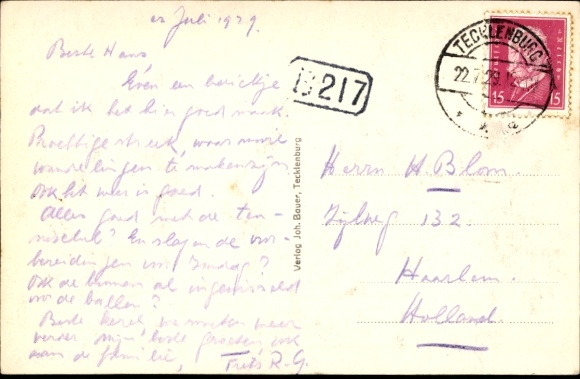 22 Juli 1929.
Beste Hans
Even een berichtje
dat ik het hier goed maak
Prachtige streek, waar mooie
wandelingen te maken zijn
Ook het weer is goed.
Alles goed met de ten-
nisclub? En slagen de voor-
bereidingen voor Zondag?
Ook de
voor de ballen?
Beste kerel, we moeten weer
verder mijn beste groeten ook
aan de familie, Frits R-G.
217
Verlag Joh. Bauer, Tecklenburg
TECKLENBURG
22.7.29
15 15
Herrn H. Blom.
Zijlweg 132.
Haarlem.
Holland.